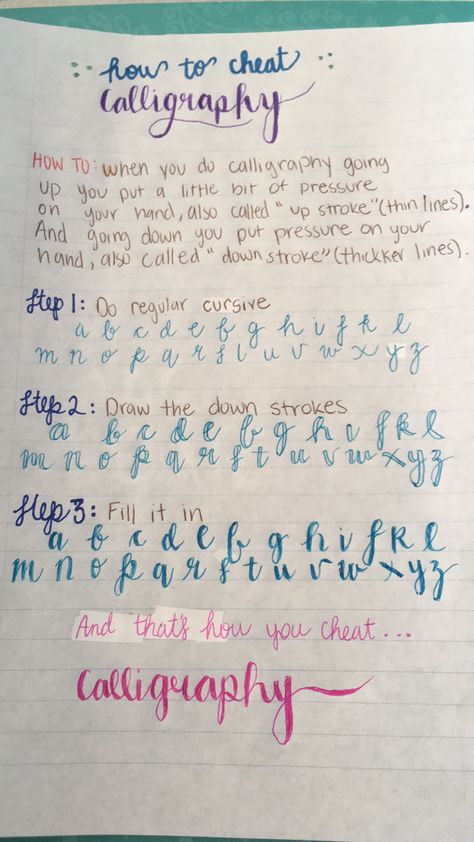 how to cheat
Calligraphy
HOW TO: when you do calligraphy going
up you put a little bit of pressure
on your hand, also called "up stroke" (thin lines).
And going down you put pressure on your
hand, also called "down stroke" (thickker lines).
Step 1: Do regular cursive
a b c d e f g h i j k l
m n o p q r s t u v w x y z
Step 2: Draw the down strokes
a b c d e f g h i j k l
m n o p q r s t u v w x y z
Step 3: Fill it in
a b c d e f g h i j k l
m n o p q r s t u v w x y z
And that's how you cheat...
Calligraphy